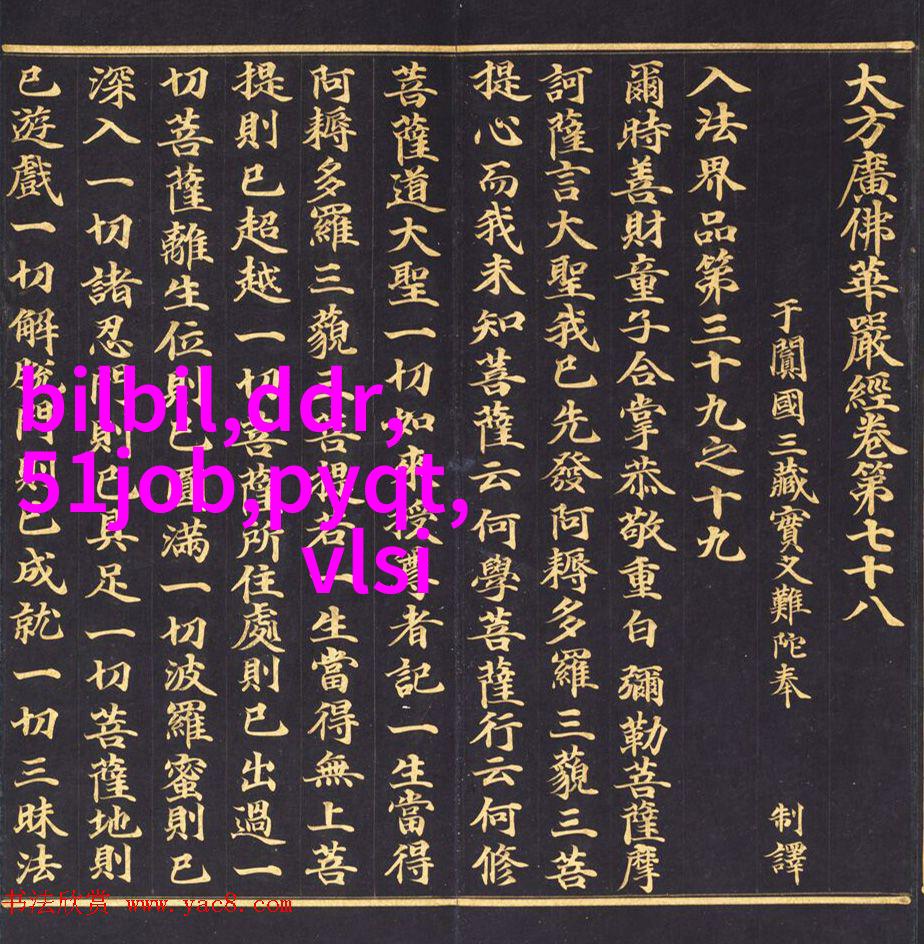 大方廣佛華嚴經卷第七十八
于闐國三藏實叉難陀奉 制譯
入法界品第三十九之十九
爾時善財童子合掌恭敬重白彌勒菩薩摩
訶薩言大聖我已先發阿耨多羅三藐三菩
提心而我未知菩薩云何學菩薩行云何修
菩薩道大聖一切如來授尊者記一生當得
阿耨多羅三藐三菩提若一生當得無上菩
提則已超越一切菩薩所住處則已出過一
切菩薩離生位則已圓滿一切波羅蜜則已
深入一切諸忍門則已具足一切菩薩地則
已遊戲一切解脫門則已成就一切三昧法
bilbil,ddr,
51job,pyqt,
vlsi
书法欣赏 www.yac8.com